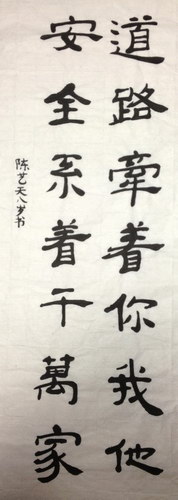 道路牵着你我他
安全系着千萬家
陈艺天八岁书